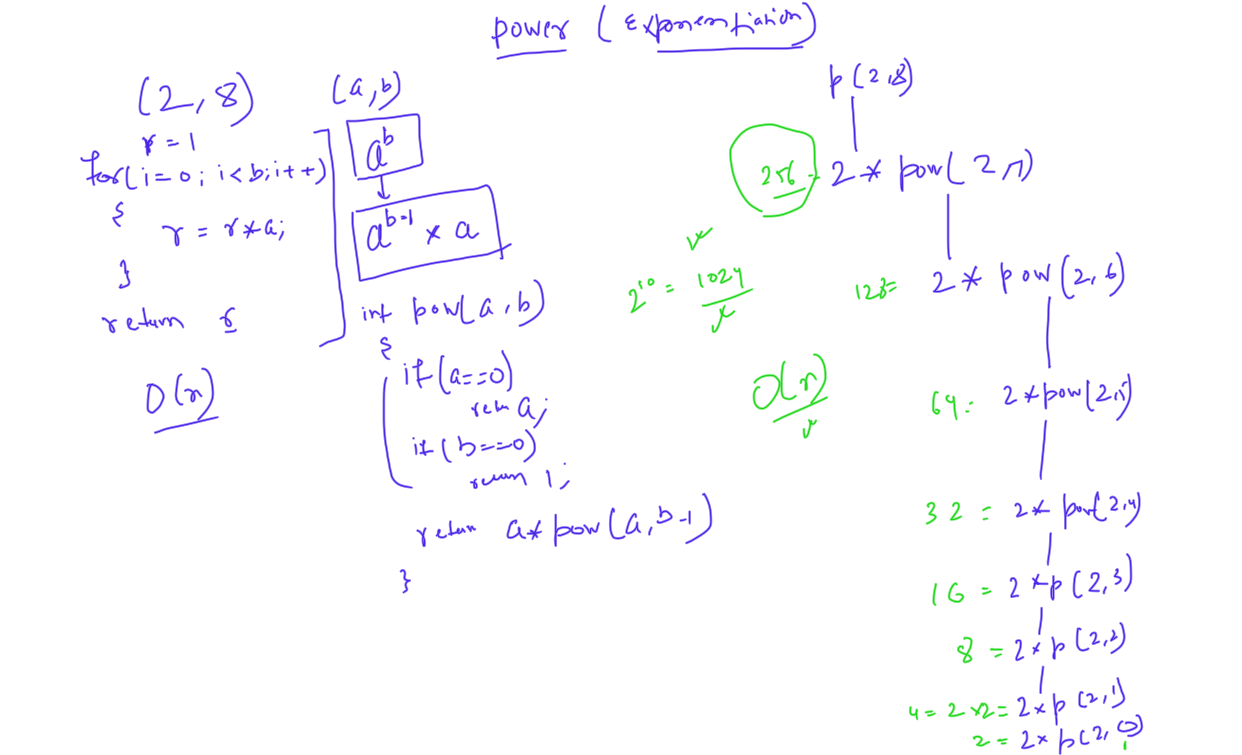 power (Exponentiation)
(2,8)
r = 1
for(i=0; i<b; i++)
{
r = r*a;
}
return r
O(n)
(a,b)
a^b
↓
a^b-1 × a
int pow(a,b)
{
if(a==0)
retn a;
if(b==0)
return 1;
return a* pow(a,b-1)
}
2^10 = 1024
O(n)
p(2,8)
256 - 2* pow(2,7)
128= 2* pow(2,6)
64= 2*pow(2,5)
32 = 2* pow(2,4)
16 = 2*p(2,3)
8 = 2*p(2,2)
4 = 2×2= 2×p(2,1)
2 = 2× p(2,0)
1